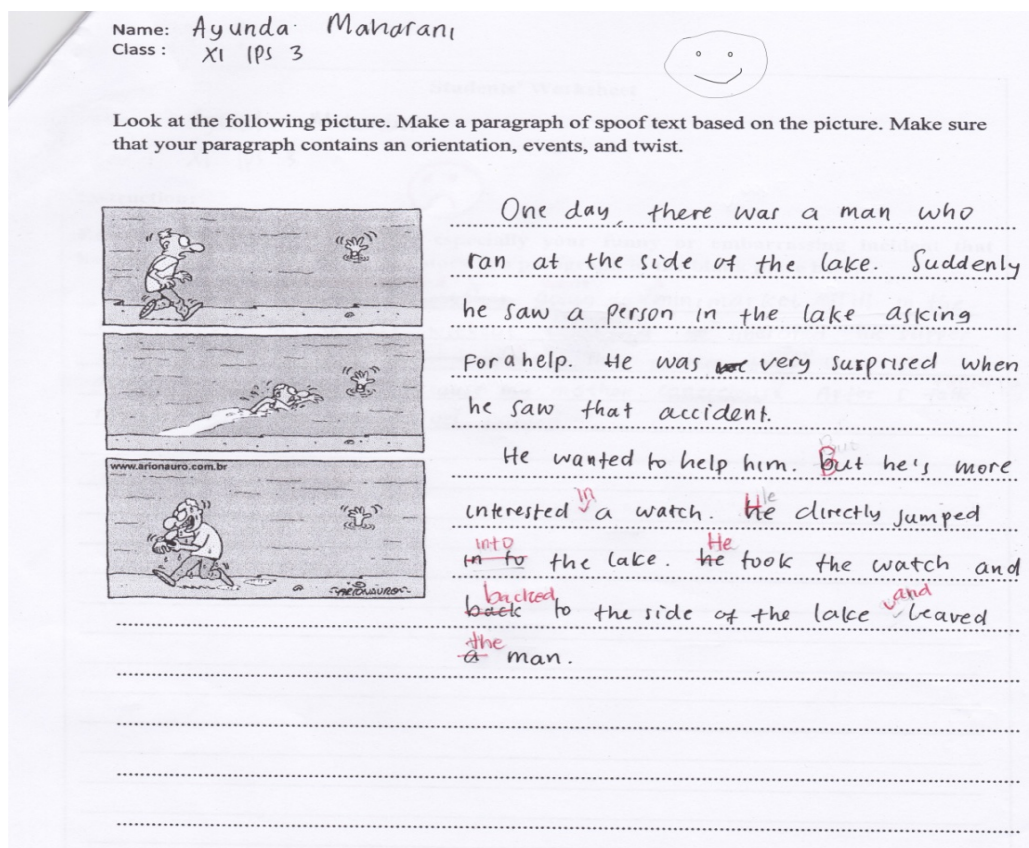 Name: Ayunda Maharani
Class : XI IPS 3
Look at the following picture. Make a paragraph of spoof text based on the picture. Make sure
that your paragraph contains an orientation, events, and twist.
One day, there was a man who
ran at the side of the lake. Suddenly
he saw a person in the lake asking
for a help. He was very surprised when
he saw that accident.
www.arionauro.com.br
He wanted to help him. But he's more
interested in a watch. He directly jumped
into
in to the lake. He he took the watch and
ARIONAURO
backed and
back to the side of the lake leaved
the
a man.